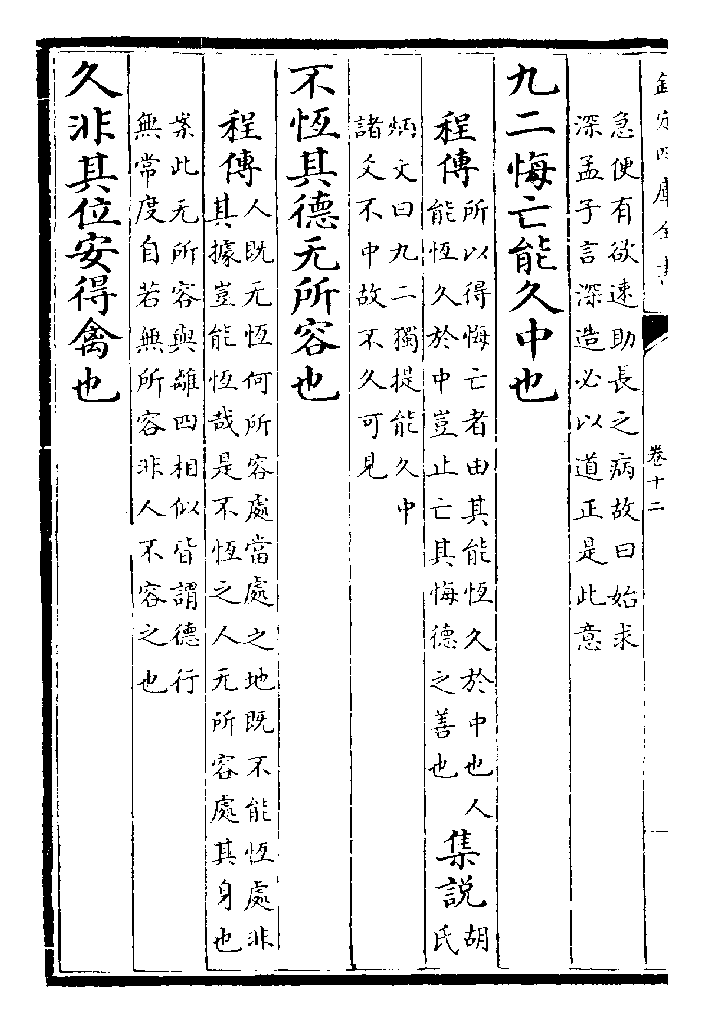 欽定四庫全書
卷十二
急便有欲速助長之病故曰始求
深孟子言深造必以道正是此意
九二悔亡能久中也
程傳
所以得悔亡者由其能恆久於中也人
能恆久於中豈止亡其悔德之善也
集説
胡
氏
炳文曰九二獨提能久中
諸爻不中故不久可見
不恆其德无所容也
程傳
人既无恆何所容處當處之地既不能恆處非
其據豈能恆哉是不恆之人无所容處其身也
案此无所容與離四相似皆謂德行
無常度自若無所容非人不容之也
久非其位安得禽也